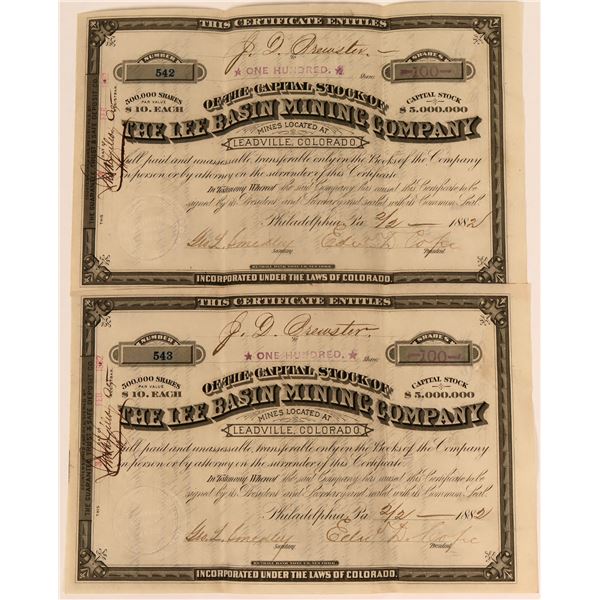 THIS CERTIFICATE ENTITLES
NUMBER
542
J. D. Brewster
SHARES
100
★ ONE HUNDRED. ★ Shares
500,000 SHARES
PAR VALUE
$ 10. EACH
OF THE CAPITAL STOCK OF
CAPITAL STOCK
$ 5.000.000
THE LEE BASIN MINING COMPANY
MINES LOCATED AT
LEADVILLE, COLORADO.
full paid and unassessable, transferable only on the Books of the Company
in person or by attorney on the surrender of this Certificate
In Testimony Whereof the said Company has caused this Certificate to be
signed by its President and Secretary and sealed with its Common Seal.
Philadelphia, Pa 2/2 1882
Geo. L. Smedley
Secretary
Edw. D. Cope
President
INCORPORATED UNDER THE LAWS OF COLORADO.
THE GUARANTEE TRUST & SAFE DEPOSIT CO.
THIS
THIS CERTIFICATE ENTITLES
NUMBER
543
J. D. Brewster
SHARES
100
★ ONE HUNDRED. ★ Shares
500,000 SHARES
PAR VALUE
$ 10. EACH
OF THE CAPITAL STOCK OF
CAPITAL STOCK
$ 5.000.000
THE LEE BASIN MINING COMPANY
MINES LOCATED AT
LEADVILLE, COLORADO.
full paid and unassessable, transferable only on the Books of the Company
in person or by attorney on the surrender of this Certificate
In Testimony Whereof the said Company has caused this Certificate to be
signed by its President and Secretary and sealed with its Common Seal.
Philadelphia, Pa 2/2 1882
Geo. L. Smedley
Secretary
Edw. D. Cope
President
INCORPORATED UNDER THE LAWS OF COLORADO.
THE GUARANTEE TRUST & SAFE DEPOSIT CO.
FEB
THIS